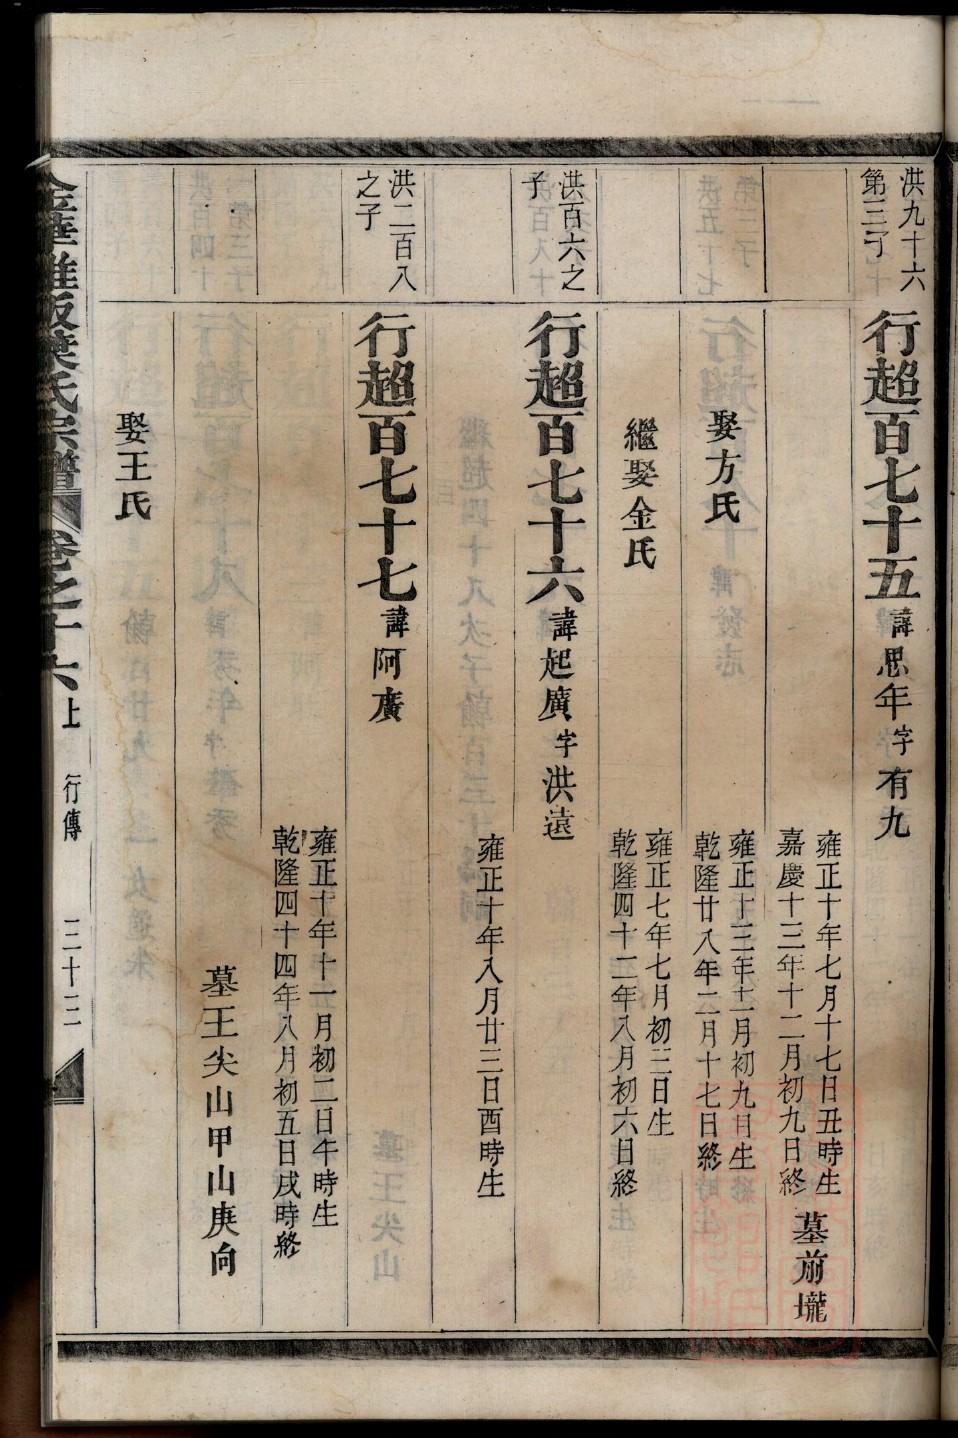 洪九十六
第三子
行超百七十五 諱思年字有九
雍正十年七月十七日丑時生
嘉慶十三年十二月初九日終
墓前壠
娶方氏
雍正十三年十一月初九日生
乾隆廿八年二月十七日終
繼娶金氏
雍正七年七月初三日生
乾隆四十二年八月初六日終
洪百六之
子
行超百七十六 諱起廣字洪遠
雍正十年八月廿三日酉時生
洪二百八
之子
行超百七十七 諱阿廣
雍正十年十一月初二日午時生
乾隆四十四年八月初五日戌時終
墓王尖山甲山庚向
娶王氏
金華雅畈葉氏宗譜 卷之十六上 行傳 三十三